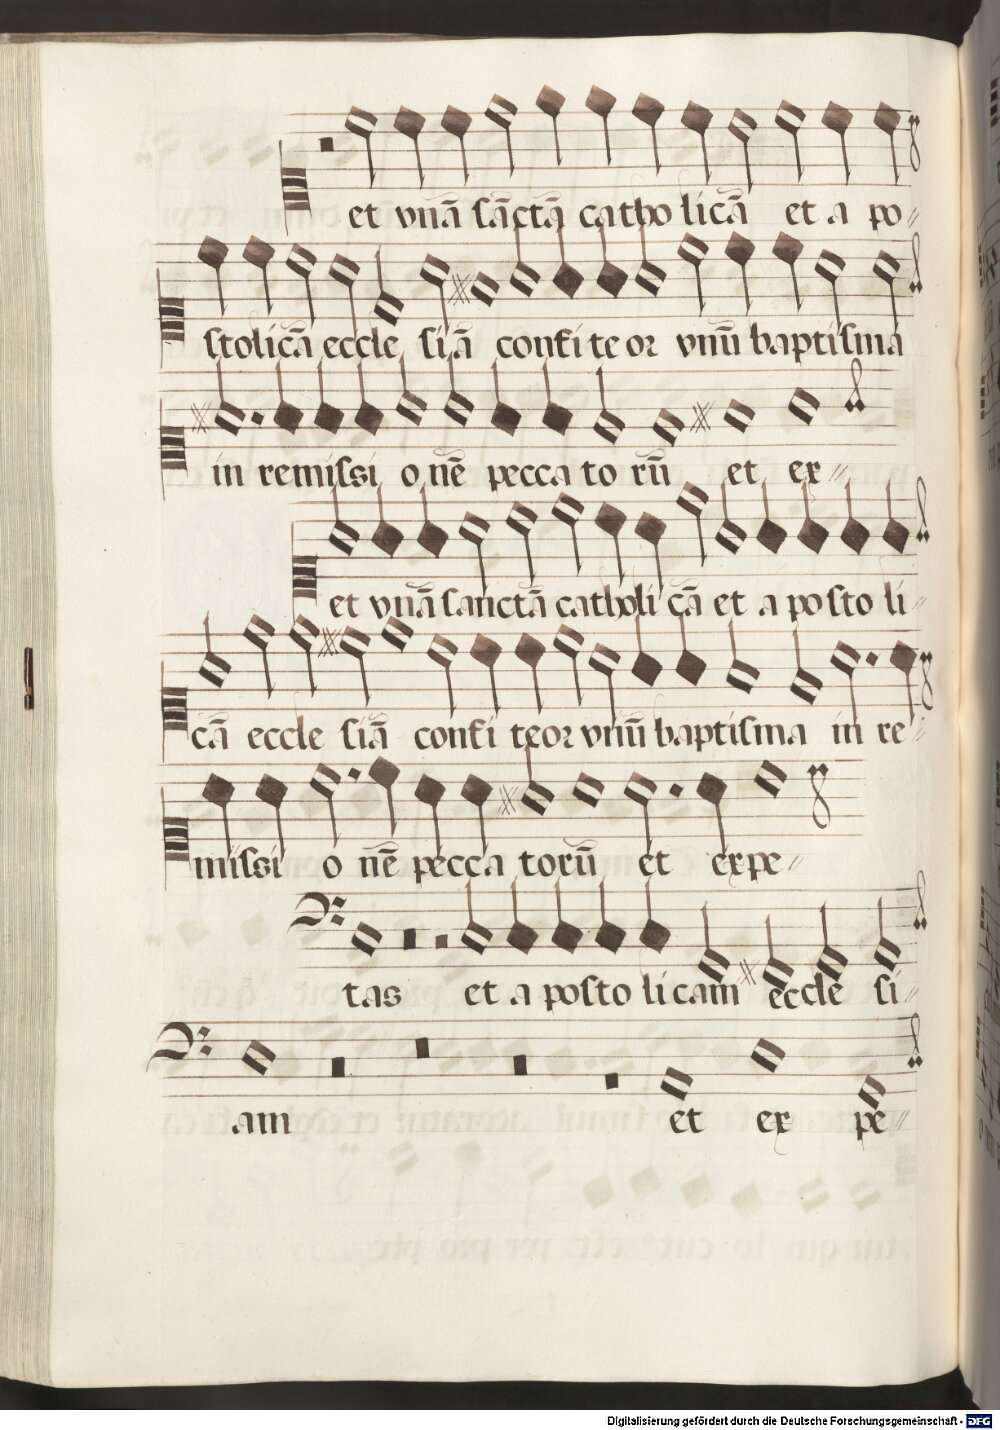 et vnā sāctā catho licā et a po〃
stolicā eccle siā confiteor vnū baptisma
in remissi onē pecca to rū et ex〃
et vnā sanctā catholi cā et a posto li〃
cā eccle siā confi teor vnū baptisma in re〃
missi o nē pecca torū et expe〃
tas et a posto li cam eccle si〃
am et ex pe〃
Digitalisierung gefördert durch die Deutsche Forschungsgemeinschaft - DFG